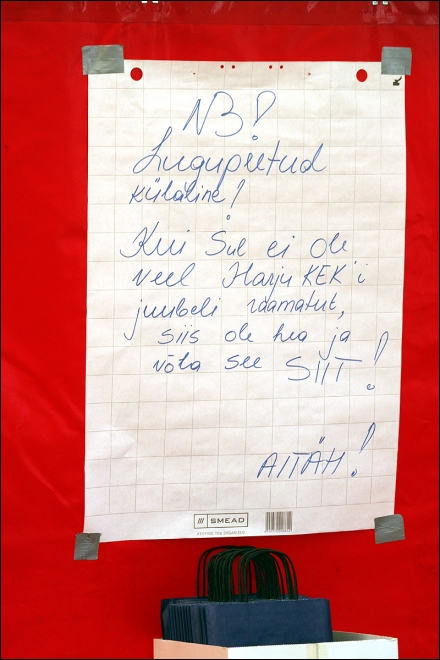 NB!
Lugupeetud
külaline!
Kui Sul ei ole
veel Harju KEK'i
juubeli raamatut,
siis ole hea ja
võta see SIIT!
AITÄH!
SMEAD
KEEPING YOU ORGANIZED